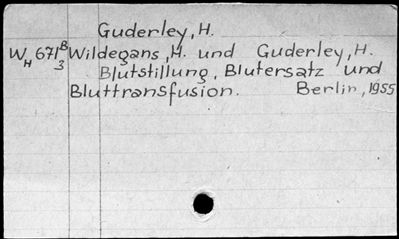 Guderley, H.
W_H 671^B_3 Wildegans, H. und Guderley, H.
Blutstillung, Blutersatz und
Bluttransfusion. Berlin, 1955